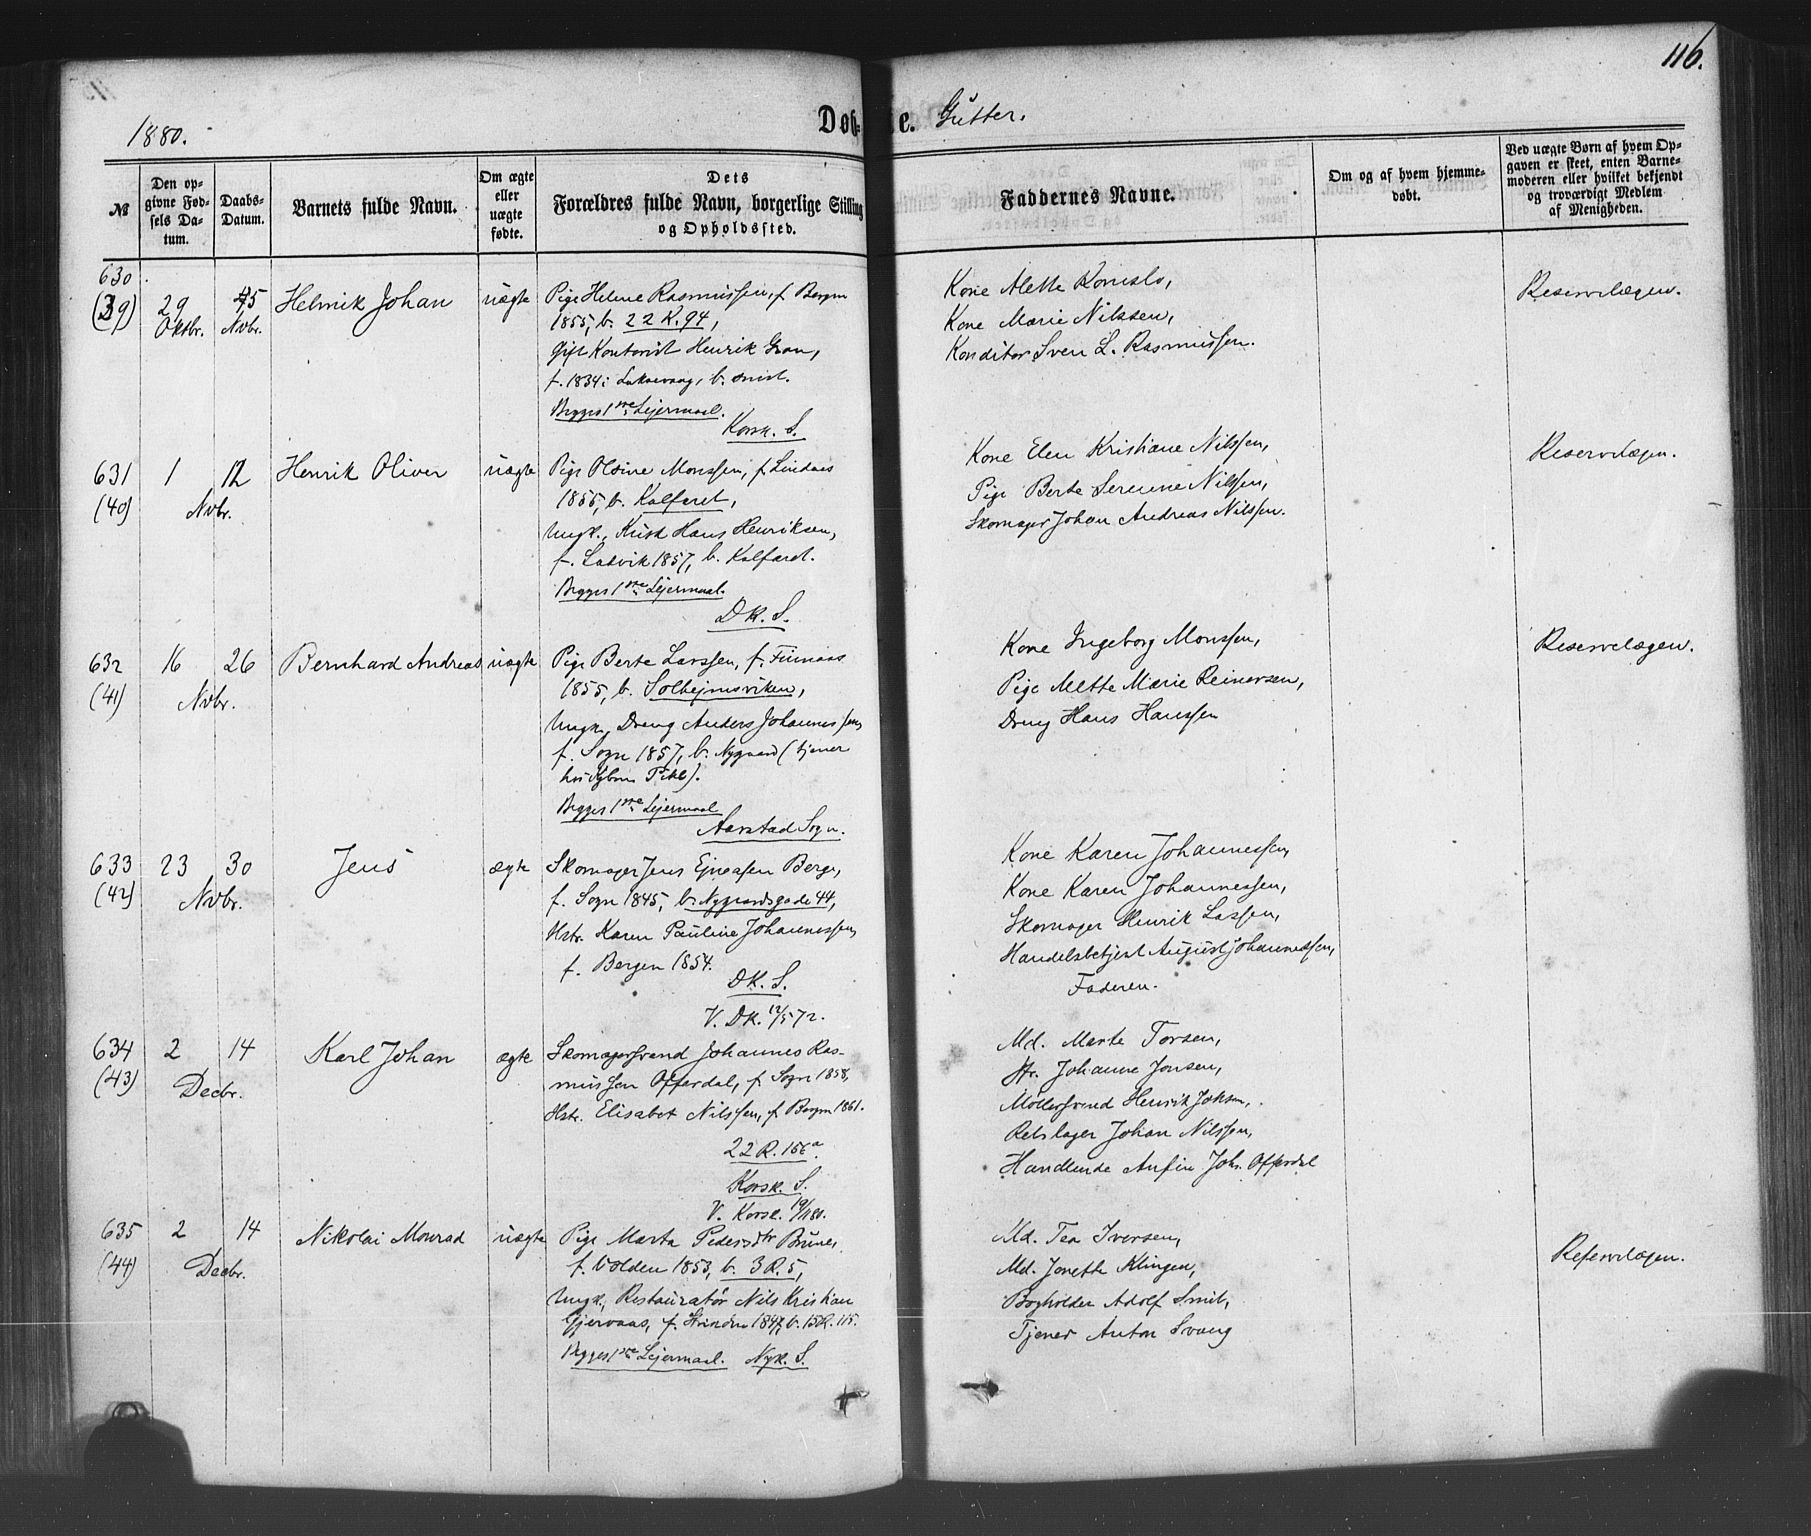 116.
1880.
Døb- te. Gutter.
№
Den opgivne Fødsels Datum.
Daabs-Datum.
Barnets fulde Navn.
Om ægte eller uægte fødte.
Dets Forældres fulde Navn, borgerlige Stilling og Opholdssted.
Faddernes Navne.
Om og af hvem hjemmedøbt.
Ved uægte Børn af hvem Opgaven er skeet, enten Barnemoderen eller hvilket bekjendt og troværdigt Medlem af Menigheden.
630
(39) 29 Oktbr. 5 Novbr. Helmik Johan uægte
Pige Helene Rasmussen, f. Bergen
1855, b. 22 R. 94,
Gift Kontorist Henrik Gran,
f. 1834 i Laksevaag, b. snist.
Begges 1ste Leiermaal.
Korsk. S.
Kone Mette Romslo,
Kone Marie Nilssen,
Konditor Sven L. Rasmussen.
Reservelægen.
631
(40) 1 12 Novbr. Henrik Oliver uægte
Pige Olvine Monssen, f. Lindaas
1855, b. Kalfaret,
Ungk., Kusk Hans Henriksen,
f. Ladvik 1857, b. Kalfaret.
Begges 1ste Leiermaal.
DK. S.
Kone Elen Kristiane Nilssen,
Pige Berte Serenne Nilssen,
Skomager Johan Andreas Nilssen.
Reservelægen.
632
(41) 16 26 Novbr. Bernhard Andreas uægte
Pige Berte Larssen, f. Finnaas
1855, b. Solhejmsviken,
Ungk., Dreng Anders Johannessen,
f. Sogn 1857, b. Nygaard (tjener
hos Kjbm Pihl).
Begges 1ste Leiermaal
Aarstad Sogn.
Kone Ingeborg Monssen,
Pige Mette Marie Reinersen,
Dreng Hans Hanssen
Reservelægen.
633
(42) 23 30 Novbr. Jens ægte
Skomager Jens Ejneasen Berge,
f. Sogn 1845, b. Nygaardsgade 44,
Hstr. Karen Pauline Johannessen,
f. Bergen 1854.
DK. S.
V. DK. 12/5 72.
Kone Karen Johannessen,
Kone Karen Johannessen,
Skomager Henrik Lassen,
Handelsbetjent August Johannessen,
Faderen.
634
(43) 2 14 Decbr. Karl Johan ægte
Skomagersvend Johannes Ras-
mussen Offerdal, f. Sogn 1858,
Hstr. Elisabet Nilssen, f. Bergen 1861.
22 R. 166a.
Korsk. S.
V. Korsk. 19/11 80.
Md. Marte Torsen,
Fr. Johanne Jonsen,
Møllersvend Henrik Joksen,
Rebslager Johan Nilssen,
Handlende Anfin Johs. Offerdal
635
(44) 2 14 Decbr. Nikolai Monrad uægte
Pige Marta Pedersdtr Brune,
f. Volden 1853, b. 3 R. 5,
Ungk., Restauratør Nils Kristian
Gjervaas, f. Strinden 1847, b. 15 R. 115.
Begges 1ste Leiermaal. Nyk. S.
Md. Tea Iversen,
Md. Jonette Klingen,
Bogholder Adolf Smit,
Tjener Anton Svang
Reservelægen.